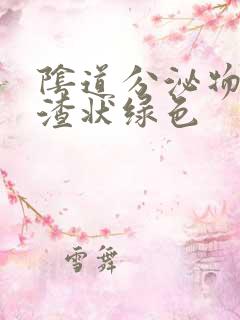 陰道分泌物
渣状绿色
雪舞